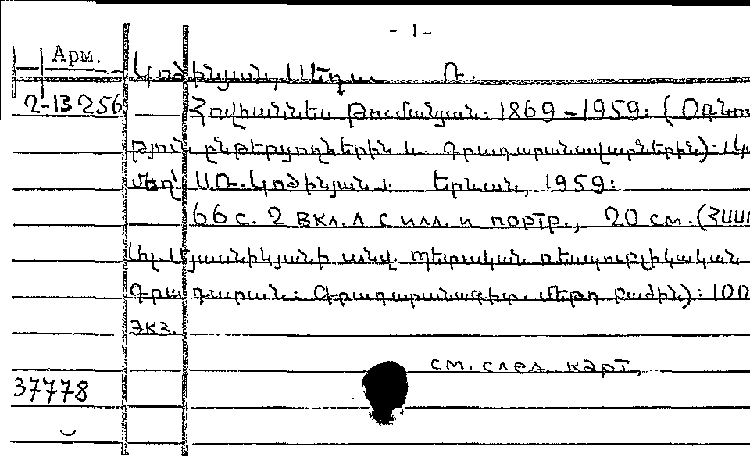 - 1 -
Арм.
Կոծինյան, Սեդա Ռ.
2-13256 Հովհաննես Թումանյան: 1869-1959: (Օգնու
թյուն ընթերցողներին և գրադարանավարներին): Կազ
մեց՝ Ս.Ռ. Կոծինյան: Երևան, 1959:
66 с. 2 вкл. л с илл. и портр., 20 см. (ՀՍՍՌ
Ալ. Մյասնիկյանի անվ. պետական ռեսպուբլիկական
գրադարան: Գրադարանագիտ. մեթոդ բաժին): 100
экз.
см. след. карт.
37778